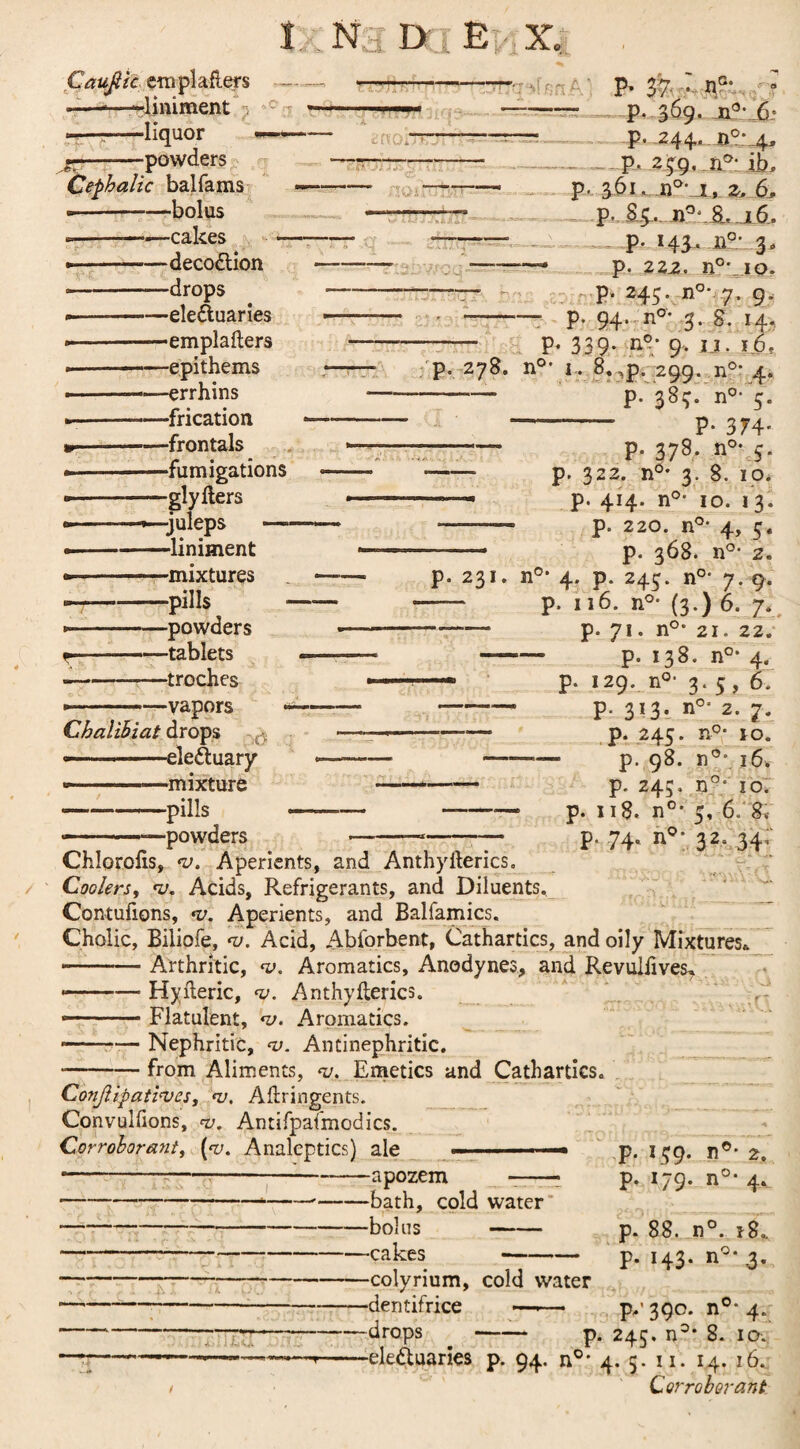 I N D E X.
Cauſtic emplaſters —— p. 37. nº.
———liniment —— p. 369. nº. 6.
———liquor —— p. 244. nº. 4.
———powders —— p. 259. nº. ib.
Cephalic balſams —— p. 361. nº. 1, 2. 6.
———bolus —— p. 85. nº. 8. 16.
———cakes —— p. 143. nº. 3.
———decoction —— p. 222. nº. 10.
———drops —— p. 245. nº. 7. 9.
———electuaries —— p. 94. nº. 3. 8. 14.
———emplaſters —— p. 339. nº. 9. 11. 16.
———epithems —— p. 278. nº. 1. 8. p. 299. nº. 4.
———errhins —— p. 385. nº. 5.
———frication —— p. 374.
———frontals —— p. 378. nº. 5.
———fumigations —— p. 322. nº. 3. 8. 10.
———glyſters —— p. 414. nº. 10. 13.
———juleps —— p. 220. nº. 4, 5.
———liniment —— p. 368. nº. 2.
———mixtures —— p. 231. nº. 4. p. 245. nº. 7. 9.
———pills —— p. 116. nº. (3.) 6. 7.
———powders —— p. 71. nº. 21. 22.
———tablets —— p. 138. nº. 4.
———troches —— p. 129. nº. 3. 5, 6.
———vapors —— p. 313. nº. 2. 7.
Chalibiat drops —— p. 245. nº. 10.
———electuary —— p. 98. nº. 16.
———mixture —— p. 245. nº. 10.
———pills —— p. 118. nº. 5, 6. 8.
———powders —— p. 74. nº. 32. 34.
Chloroſis, v. Aperients, and Anthyſterics.
Coolers, v. Acids, Refrigerants, and Diluents.
Contuſions, v. Aperients, and Balſamics.
Cholic, Bilioſe, v. Acid, Abſorbent, Cathartics, and oily Mixtures.
——— Arthritic, v. Aromatics, Anodynes, and Revulſives.
——— Hyſteric, v. Anthyſterics.
——— Flatulent, v. Aromatics.
——— Nephritic, v. Antinephritic.
——— from Aliments, v. Emetics and Cathartics.
Conſtipatives, v. Aſtringents.
Convulſions, v. Antiſpaſmodics.
Corroborant, (v. Analeptics) ale —— p. 159. nº. 2.
———apozem —— p. 179. nº. 4.
———bath, cold water
———bolus —— p. 88. nº. 18.
———cakes —— p. 143. nº. 3.
———colyrium, cold water
———dentifrice —— p. 390. nº. 4.
———drops —— p. 245. nº. 8. 10.
———electuaries p. 94. nº. 4. 5. 11. 14. 16.
Corroborant